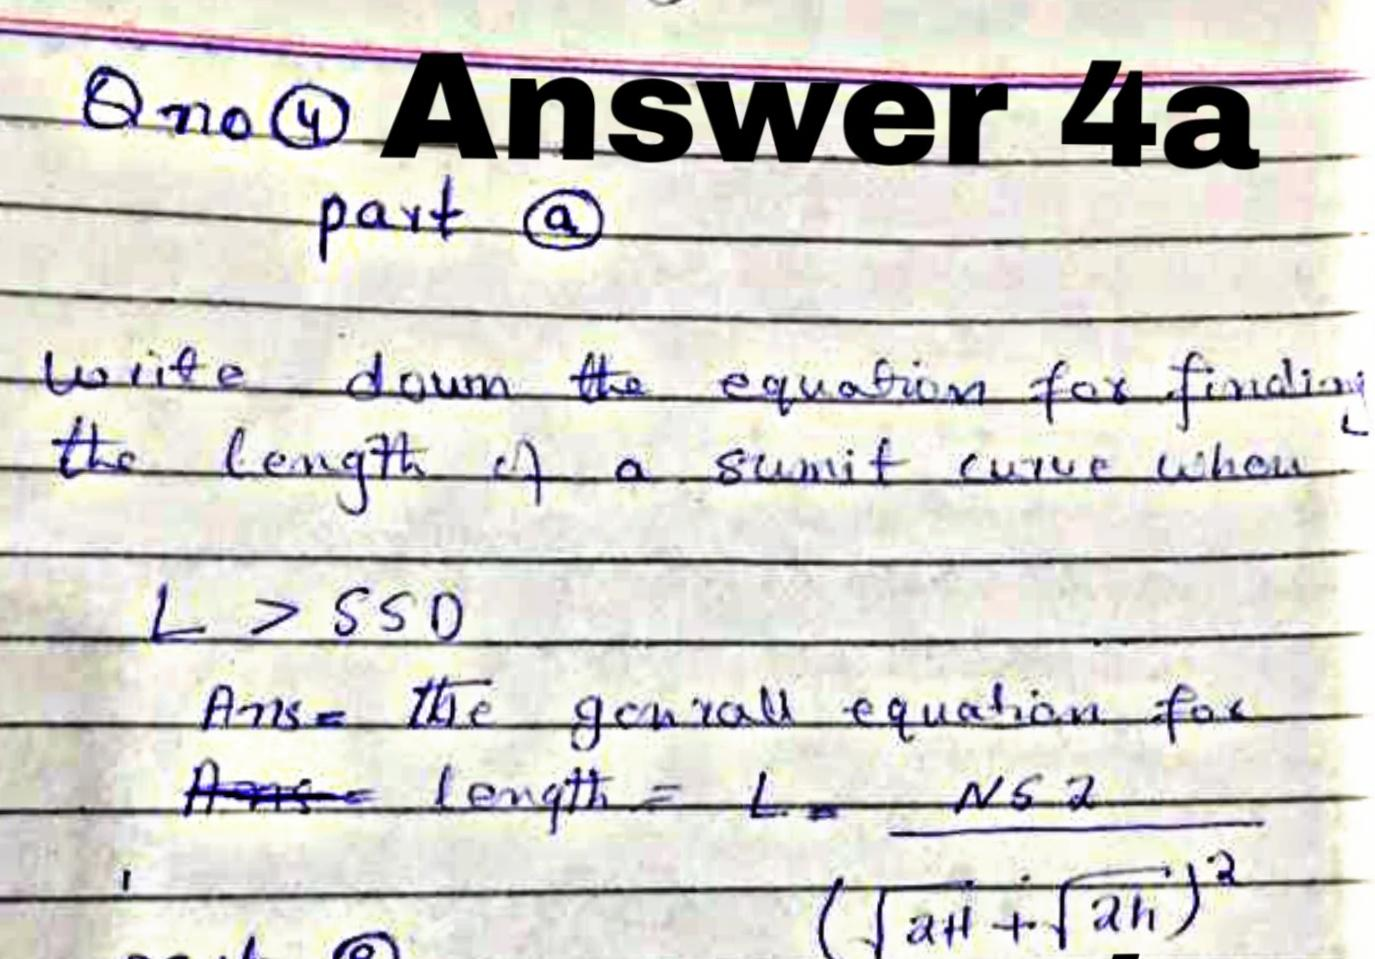 Q no 4 Answer 4a
part a
write down the equation for finding
the length of a sumit curve when
L > SSD
Ans = The genrall equation for
length = L = NS2
(√2H + √2h)2